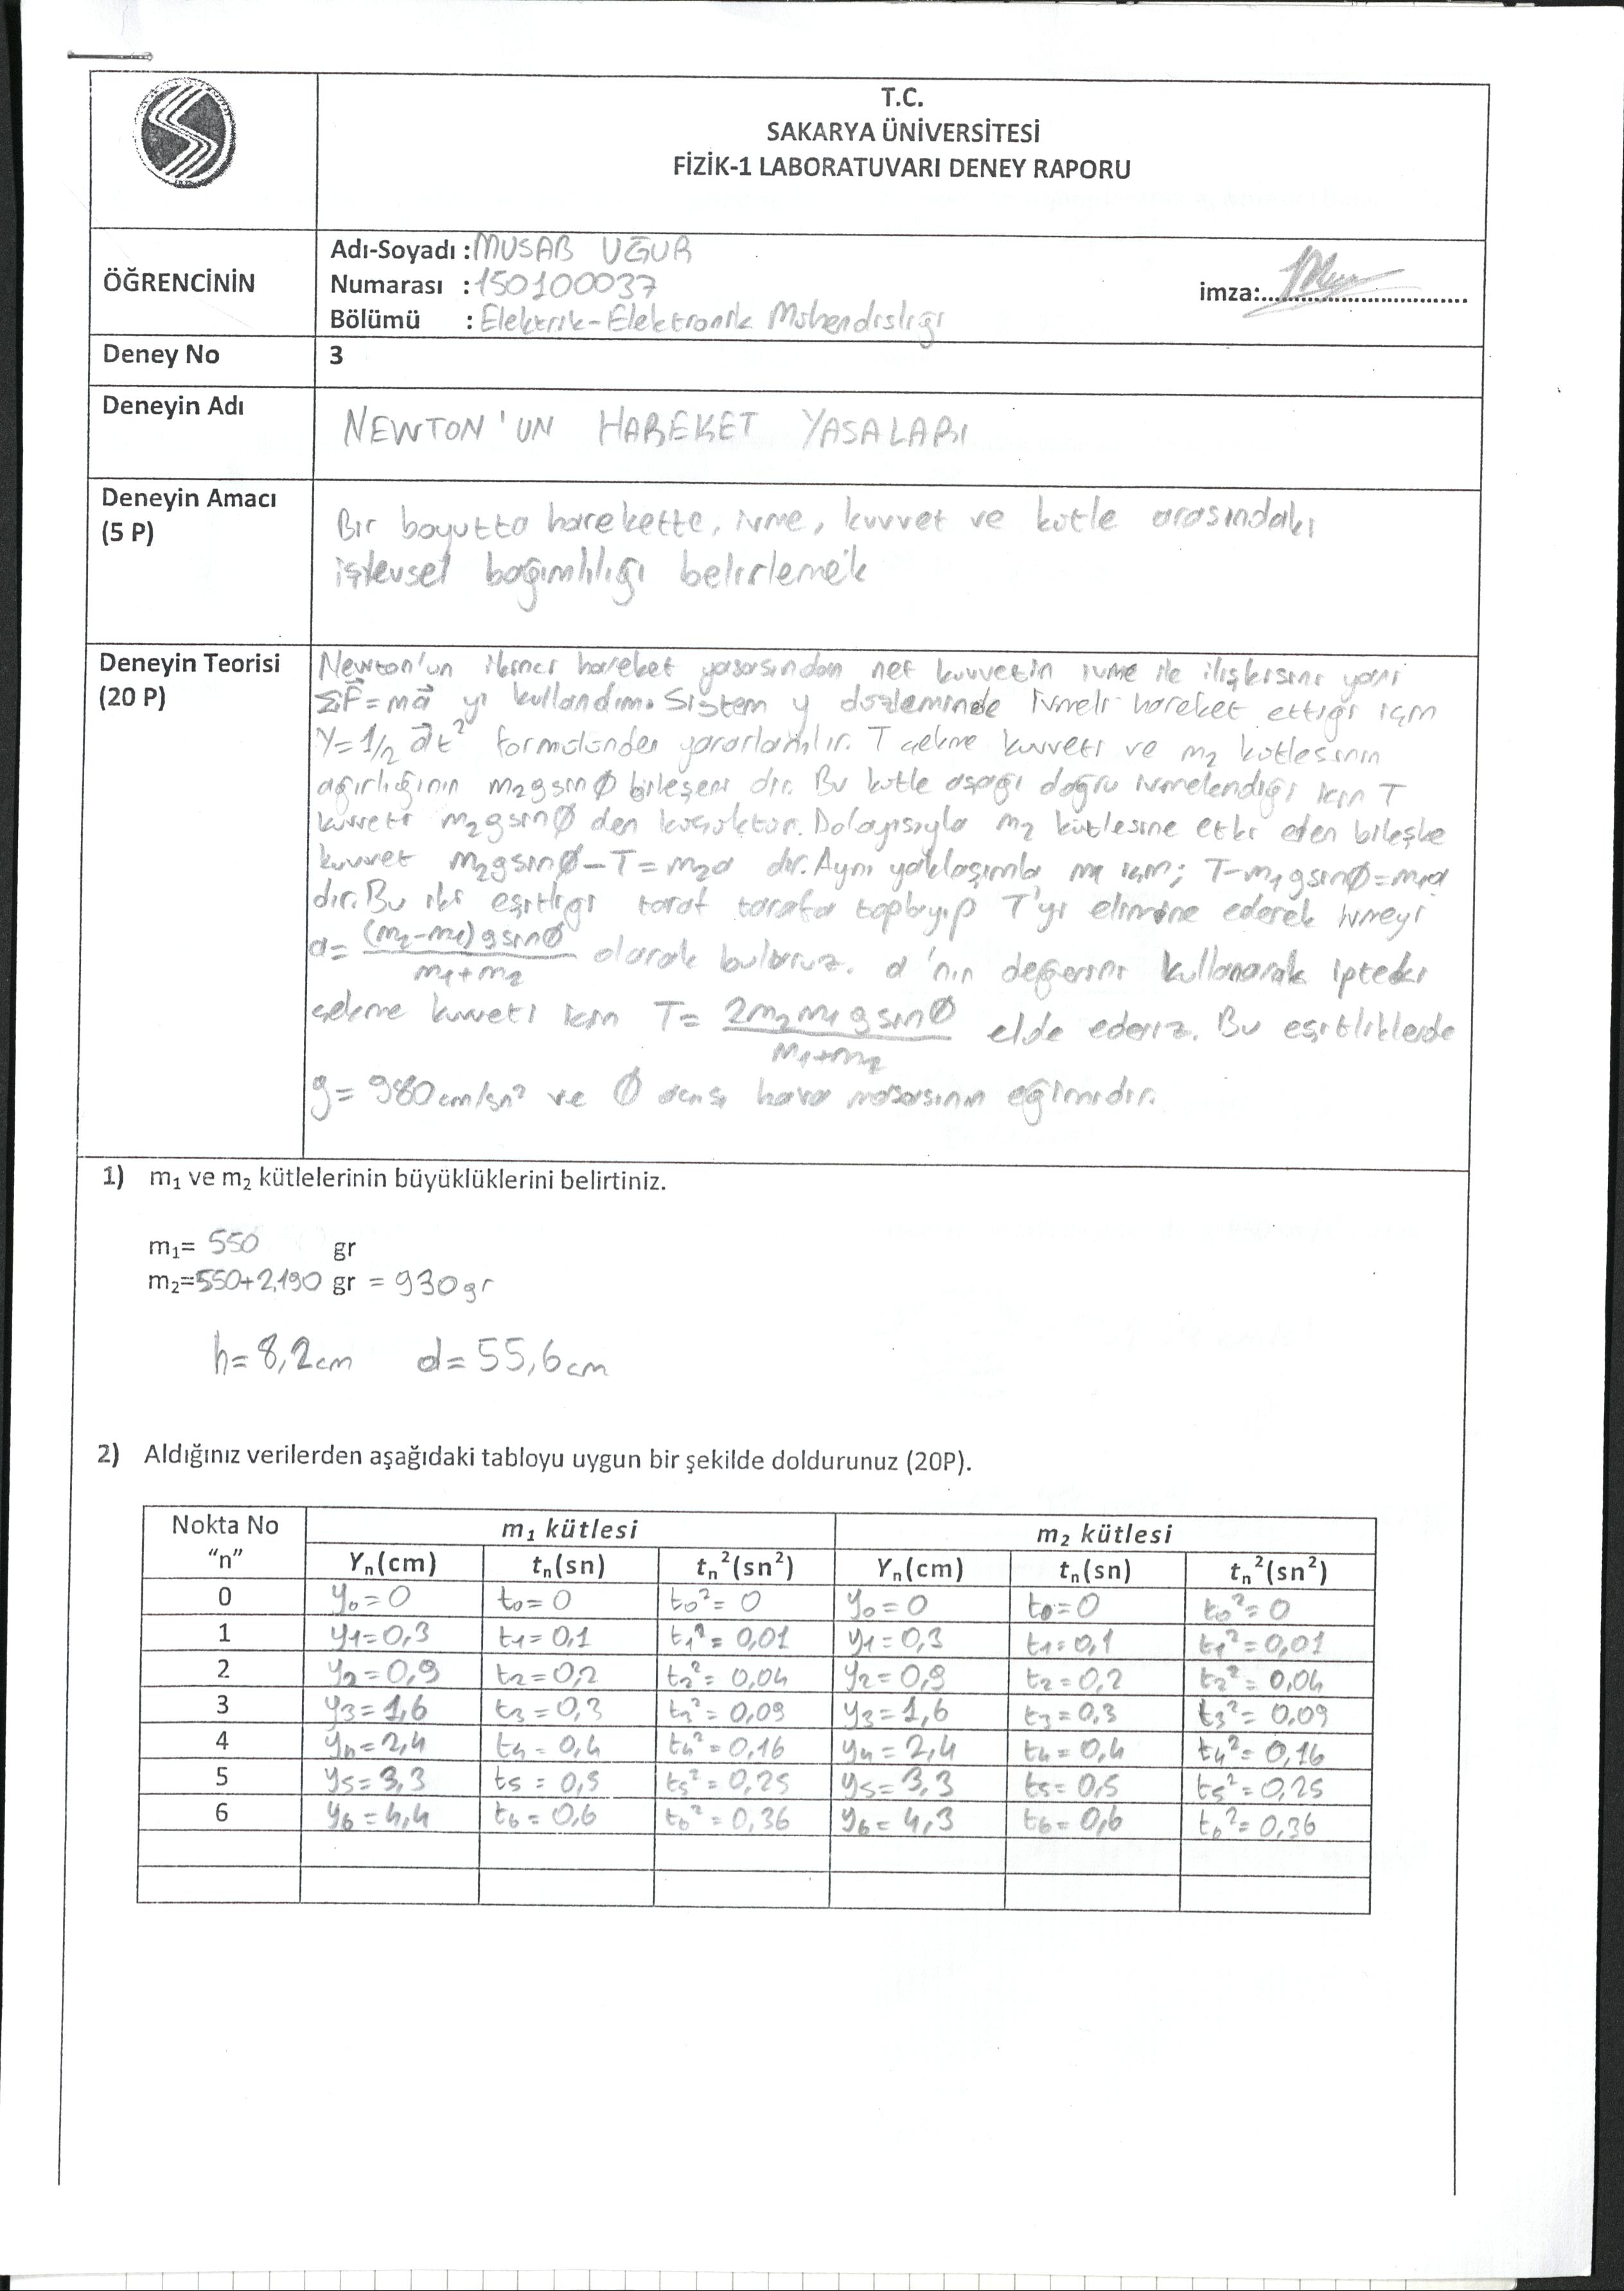 T.C.
SAKARYA ÜNİVERSİTESİ
FİZİK-1 LABORATUVARI DENEY RAPORU
ÖĞRENCİNİN
Adı-Soyadı : MUSAB UĞUR
Numarası : 150100037
Bölümü : Elektrik-Elektronik Mühendisliği
imza:
Deney No 3
Deneyin Adı NEWTON'UN HAREKET YASALARI
Deneyin Amacı (5 P)
Bir boyutta harekette, ivme, kuvvet ve kütle arasındaki
işlevsel bağımlılığı belirlemek
Deneyin Teorisi (20 P)
Newton'un ikinci hareket yasasından net kuvvetin ivme ile ilişkisini yani
ΣF⃗=ma⃗ yı kullandım. Sistem y düzleminde ivmeli hareket ettiği için
Y=1/2 a⃗t² formülünden yararlanılır. T çekme kuvveti ve m₂ kütlesinin
ağırlığının m₂gsinØ bileşeni dir. Bu kütle aşağı doğru ivmelendiği için T
kuvveti m₂gsinØ den küçüktür. Dolayısıyla m₂ kütlesine etki eden bileşke
kuvvet m₂gsinØ-T=m₂a dır. Aynı yaklaşımla m₁ için; T-m₁gsinØ=m₁a
dır. Bu iki eşitliği taraf tarafa toplayıp T'yi elimine ederek ivmeyi
a= (m₂-m₁)gsinØ / m₁+m₂ olarak buluruz. a'nın değerini kullanarak ipteki
çekme kuvveti için T= 2m₂m₁gsinØ / m₁+m₂ elde ederiz. Bu eşitliklerde
g= 980cm/sn² ve Ø açısı hava masasının eğimidir.
1) m₁ ve m₂ kütlelerinin büyüklüklerini belirtiniz.
m₁= 550 gr
m₂=550+2.190 gr = 930gr
h= 8,2cm d= 55,6cm
2) Aldığınız verilerden aşağıdaki tabloyu uygun bir şekilde doldurunuz (20P).
Nokta No "n" m₁ kütlesi m₂ kütlesi
Yₙ(cm) tₙ(sn) tₙ²(sn²) Yₙ(cm) tₙ(sn) tₙ²(sn²)
0 y₀=0 t₀=0 t₀²=0 y₀=0 t₀=0 t₀²=0
1 y₁=0,3 t₁=0,1 t₁²=0,01 y₁=0,3 t₁=0,1 t₁²=0,01
2 y₂=0,9 t₂=0,2 t₂²=0,04 y₂=0,9 t₂=0,2 t₂²=0,04
3 y₃=1,6 t₃=0,3 t₃²=0,09 y₃=1,6 t₃=0,3 t₃²=0,09
4 y₄=2,4 t₄=0,4 t₄²=0,16 y₄=2,4 t₄=0,4 t₄²=0,16
5 y₅=3,3 t₅=0,5 t₅²=0,25 y₅=3,3 t₅=0,5 t₅²=0,25
6 y₆=4,4 t₆=0,6 t₆²=0,36 y₆=4,3 t₆=0,6 t₆²=0,36